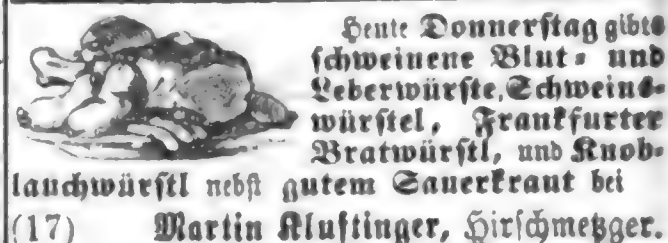 Heute Donnerstag gibts
schweinene Blut- und
Leberwürste, Schweins-
würstel, Frankfurter
Bratwürstl, und Knob-
lauchwürstl nebst gutem Sauerkraut bei
(17) Martin Kluftinger, Hirschmetzger.